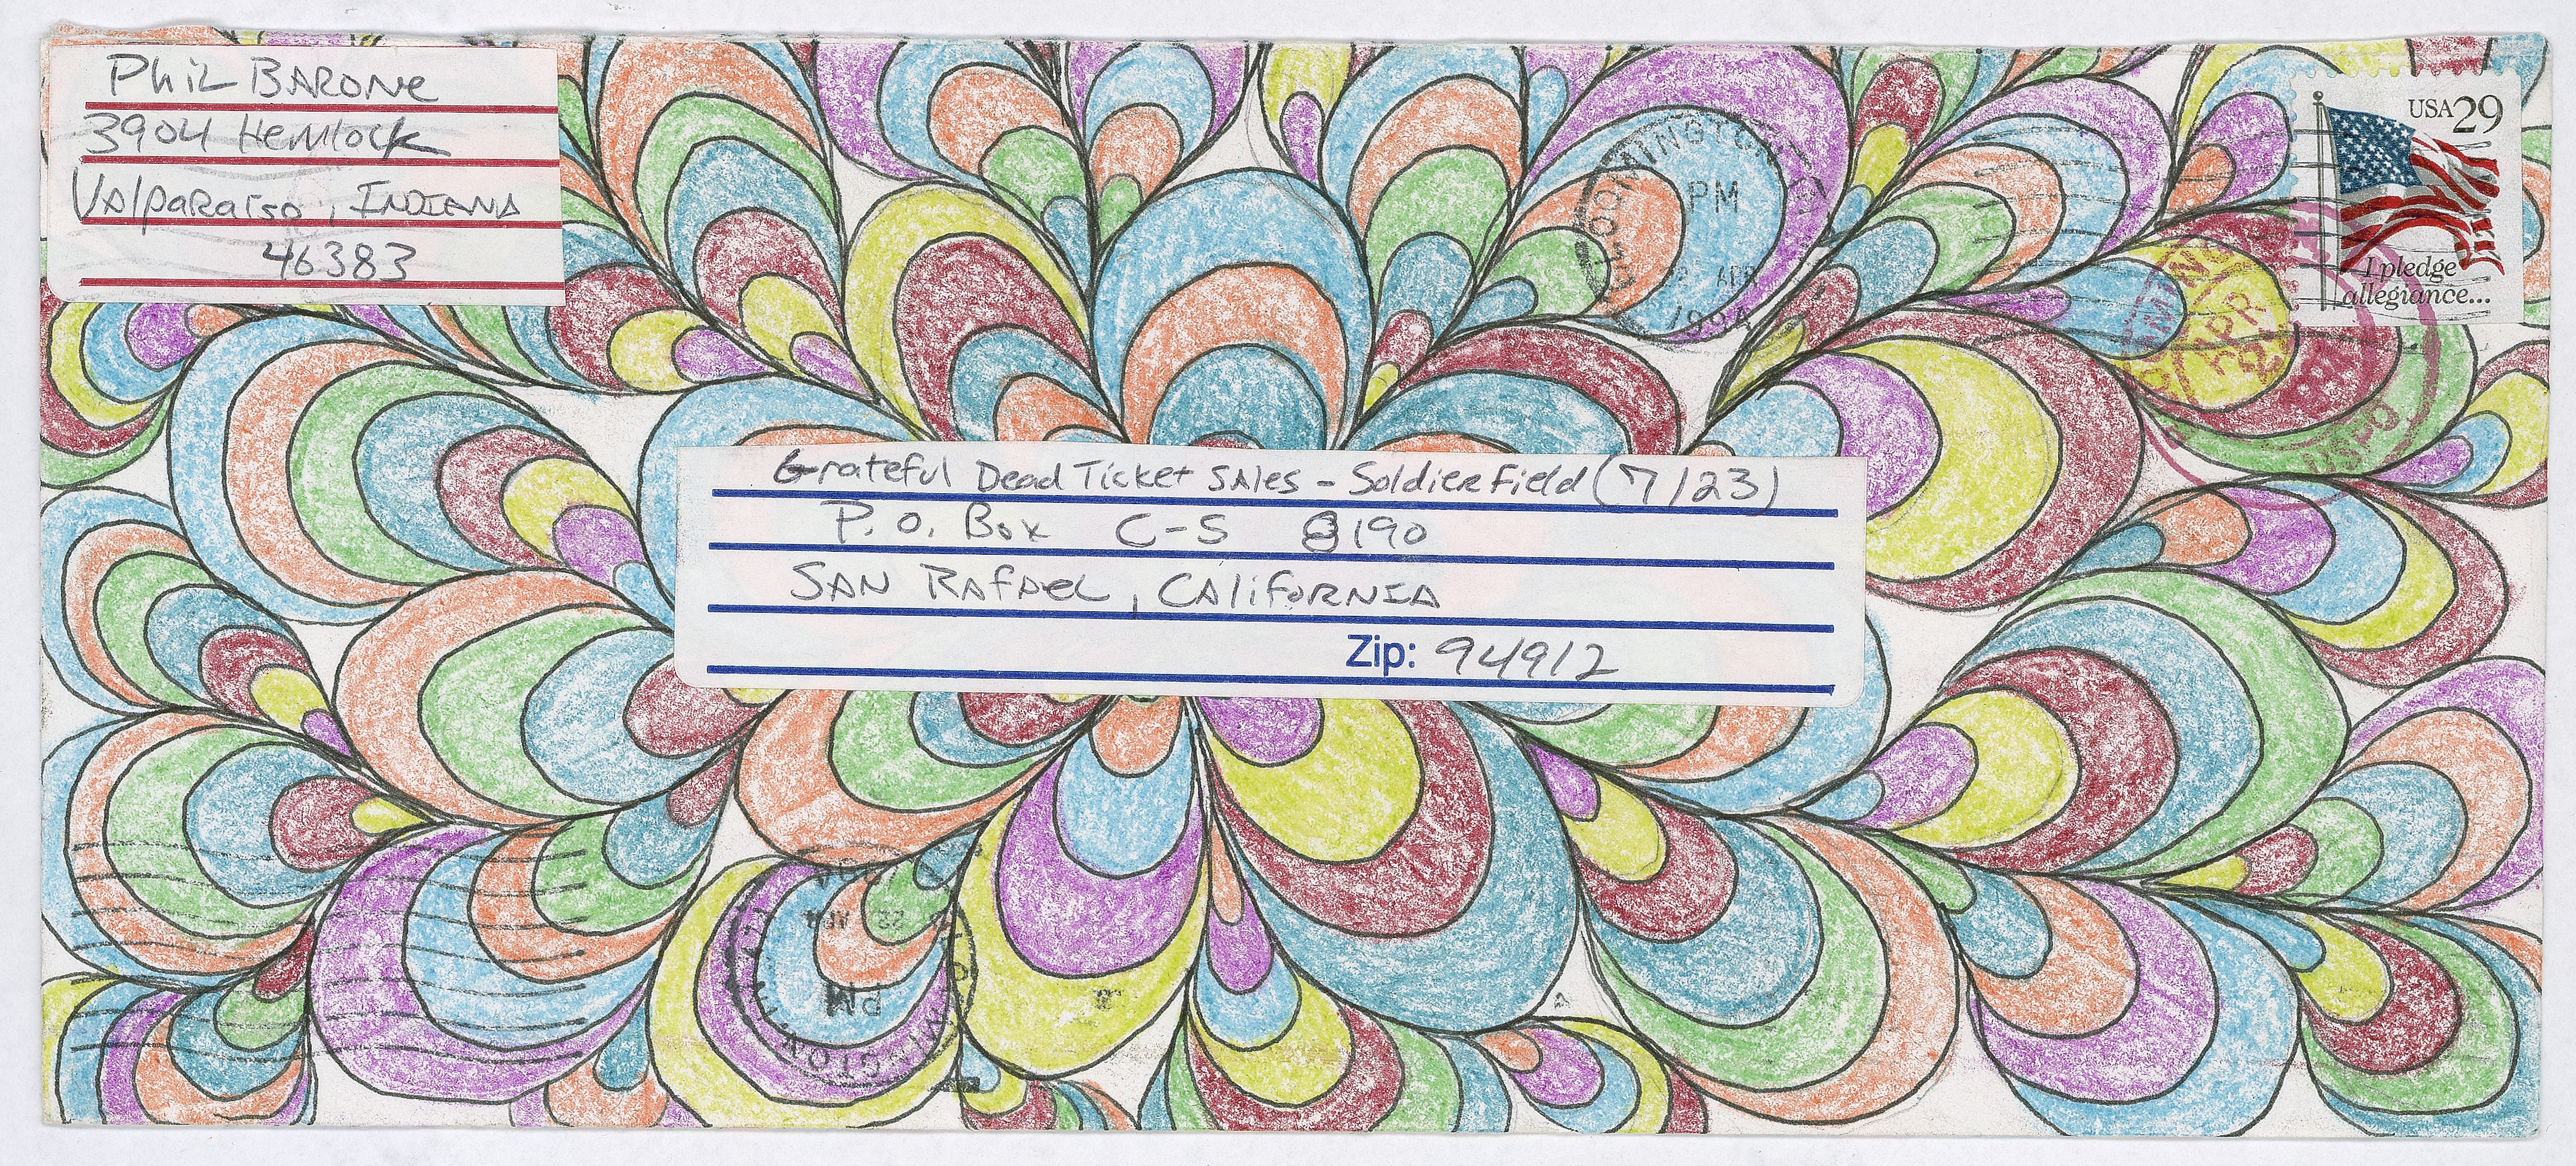 Phil Barone
3904 Hemlock
Valparaiso, Indiana
46383
USA 29
I pledge
allegiance...
BLOOMINGTON
PM
22 APR
1994
APR
Grateful Dead Ticket Sales - Soldier Field (7/23)
P.O. Box C-S 8190
San Rafael, California
Zip: 94912
22 APR
PM